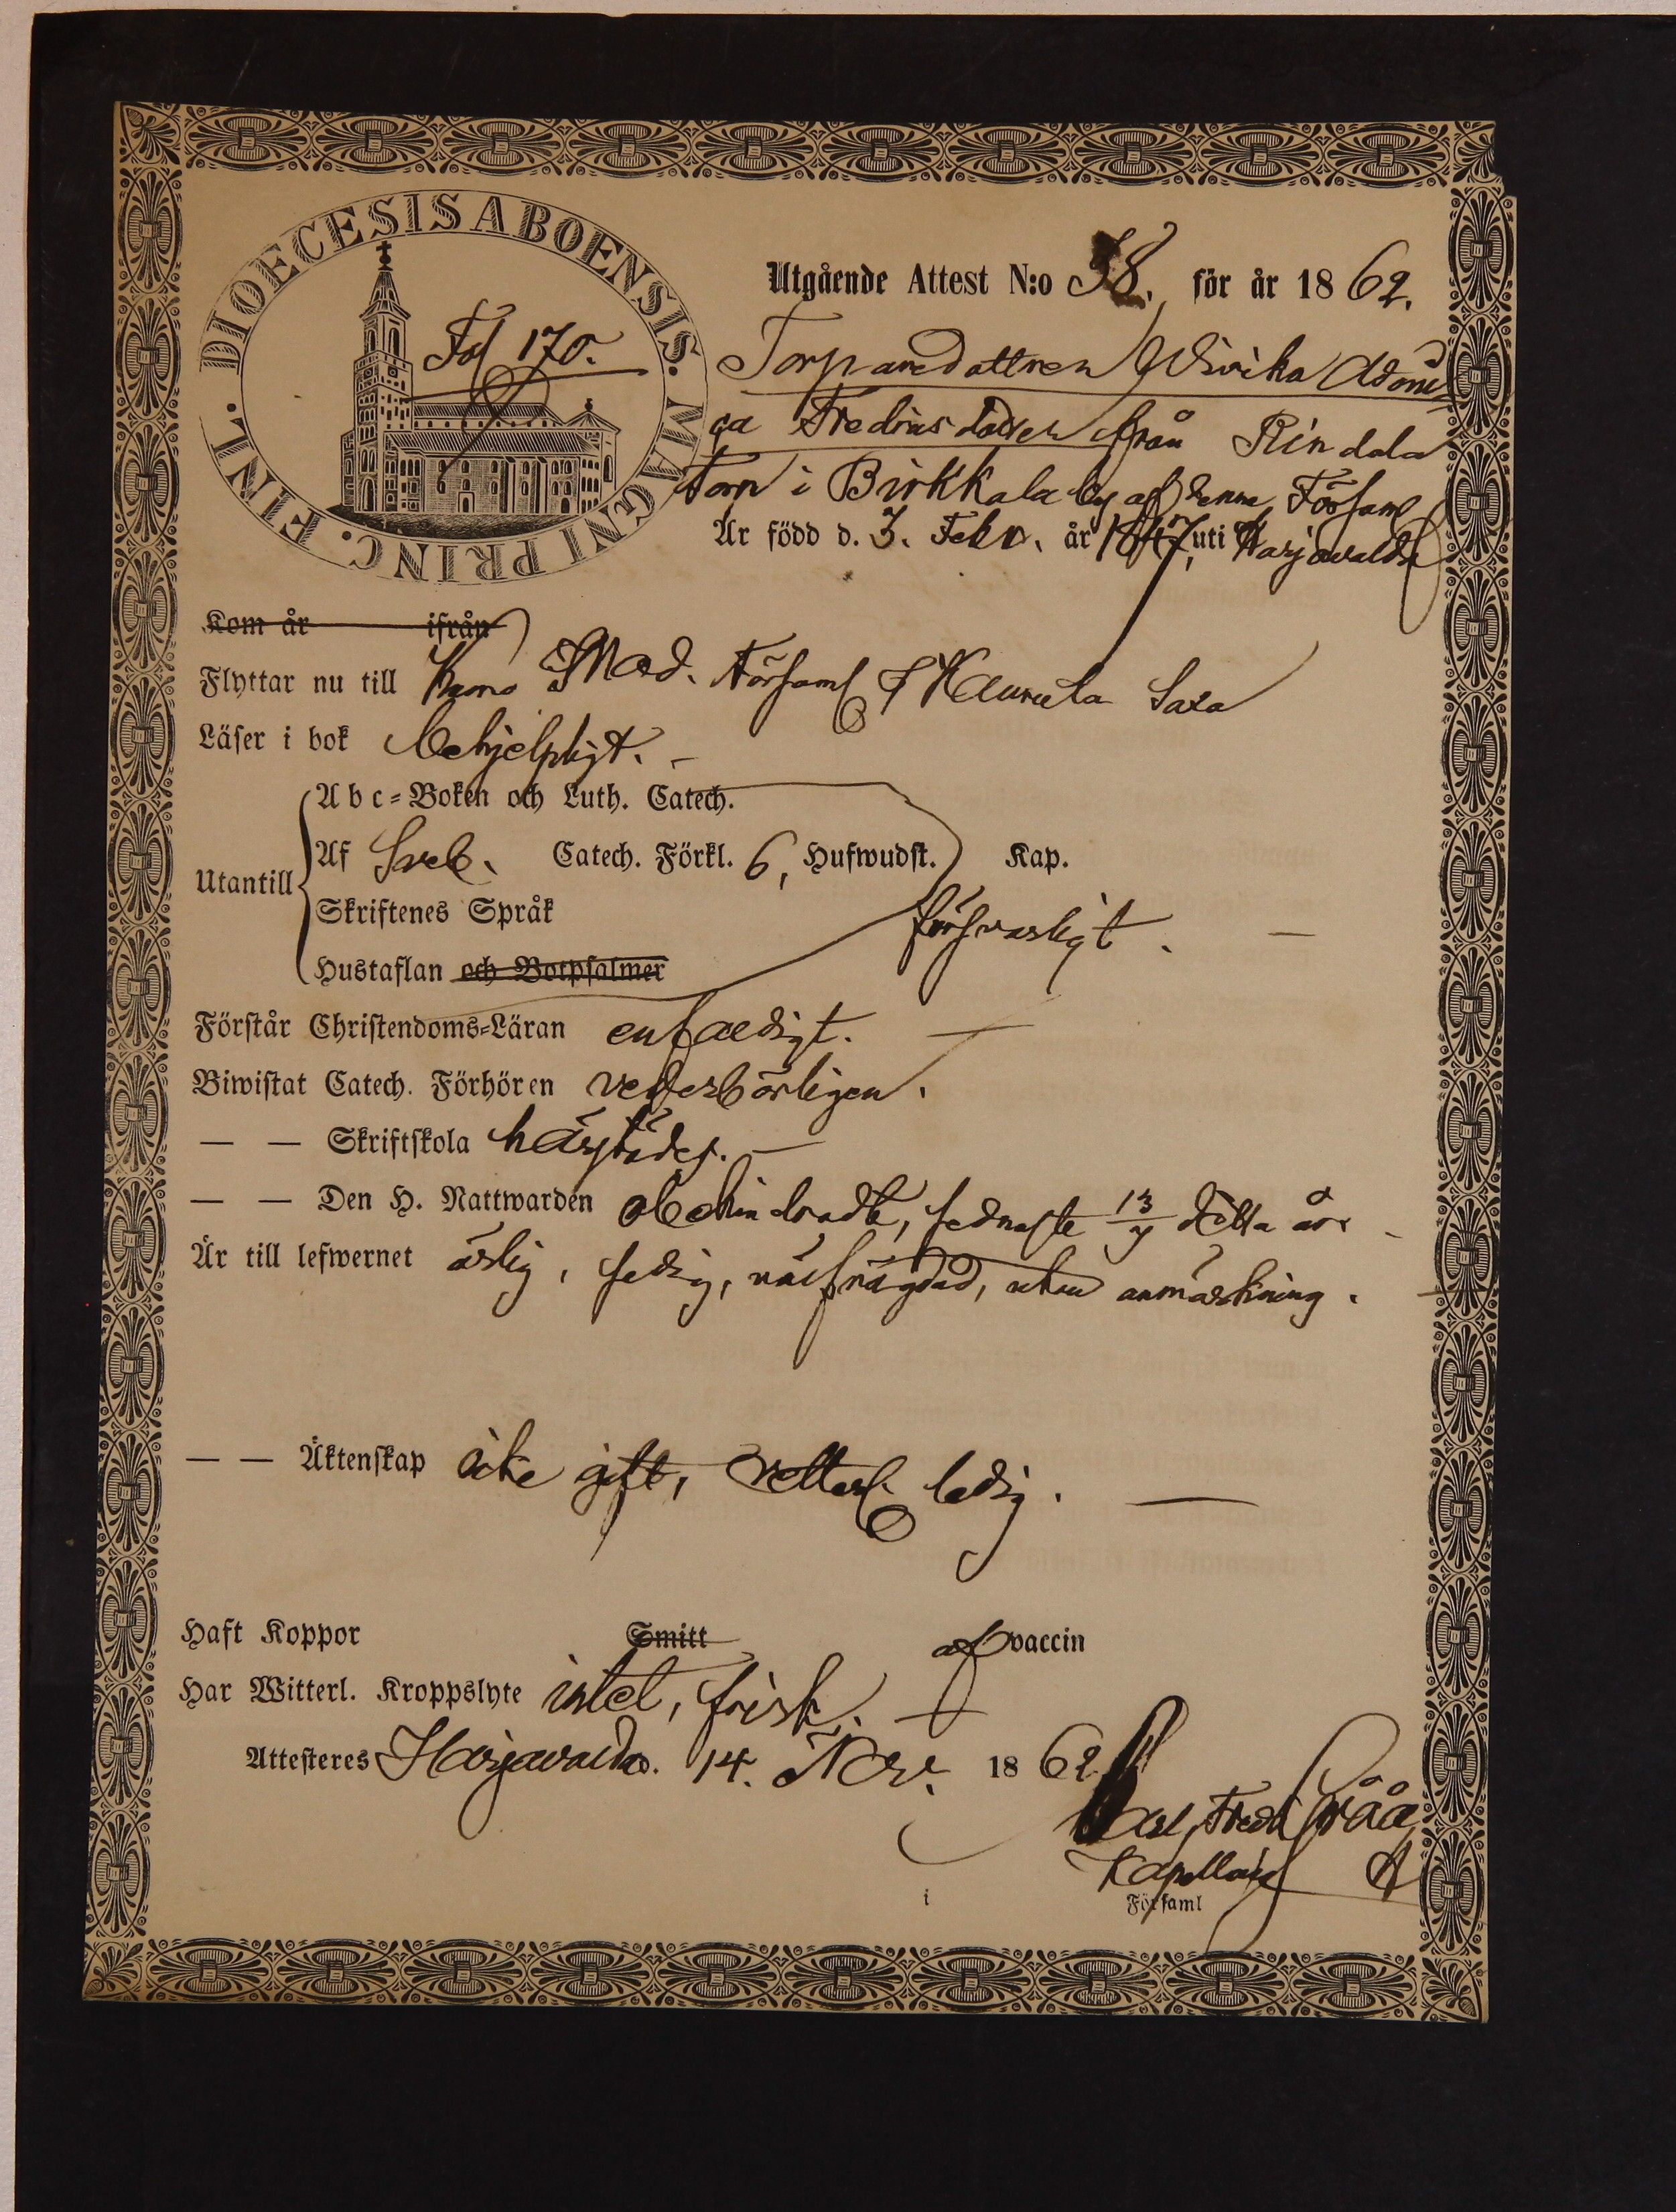 DIOECESIS ABOENSIS. MAGNI PRINC. FINL.
Fol 170.
Utgående Attest N:o 38. för år 1862.
Torparedottren Ulrika
Fredriksdotter från Rindala
Torp i Birkkala by af denna Församl
Är född d. 3. Febr. år 1847, uti Harjavalda
Kom år ifrån
Flyttar nu till Kumo Mod. Församl
Läser i bok behjelpligt.
Utantill
Abc-Boken och Luth. Catech.
Af Sveb. Catech. Förkl. 6, Hufwudst. Kap.
Skriftenes Språk försvarligt.
Hustaflan och Botpsalmer
Förstår Christendoms-Läran enfaldigt.
Biwistat Catech. Förhören vederbörligen.
— — Skriftskola härstädes.
— — Den H. Nattwarden obehindradt, sednaste detta år
Är till lefwernet ärlig, sedig, välfrägdad, utan anmärkning.
— — Äktenskap icke gift, vetterl. ledig.
Haft Koppor Smitt af vaccin
Har Witterl. Kroppslyte intet, frisk.
Attesteres Harjavalda. 14. Nov. 1862
Carl Fredr.
Kapellan
i Församl